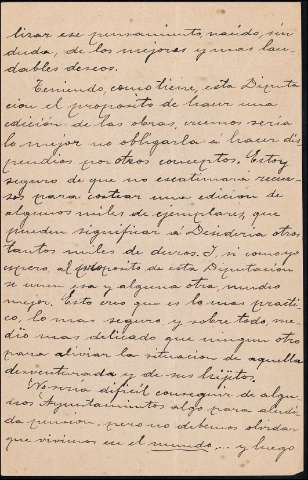 lizar ese pensamiento, nacido, sin
duda, de los mejores y mas lau-
dables deseos.
Teniendo, como tiene, esta Diputa-
cion el proposito de hacer una
edición de las obras, creemos sería
lo mejor no obligarla á hacer dis-
pendios por otros conceptos. Estoy
seguro de que no escatimará recur-
sos para costear una edicion de
algunos miles de ejemplares, que
pueden significar á Desideria otros
tantos miles de duros. I, si como yo
espero, al proposito de esta Diputacion
se unen esa y alguna otra, mucho
mejor. Esto creo que es lo mas practi-
co, lo mas seguro y sobre todo, me-
dio mas delicado que ningun otro
para aliviar la situacion de aquella
desventurada y de sus hijitos.
No seria dificil conseguir de algu-
nos Ayuntamientos algo para aludi-
da pension, pero no debemos olvidar
que vivimos en el mundo.... y luego